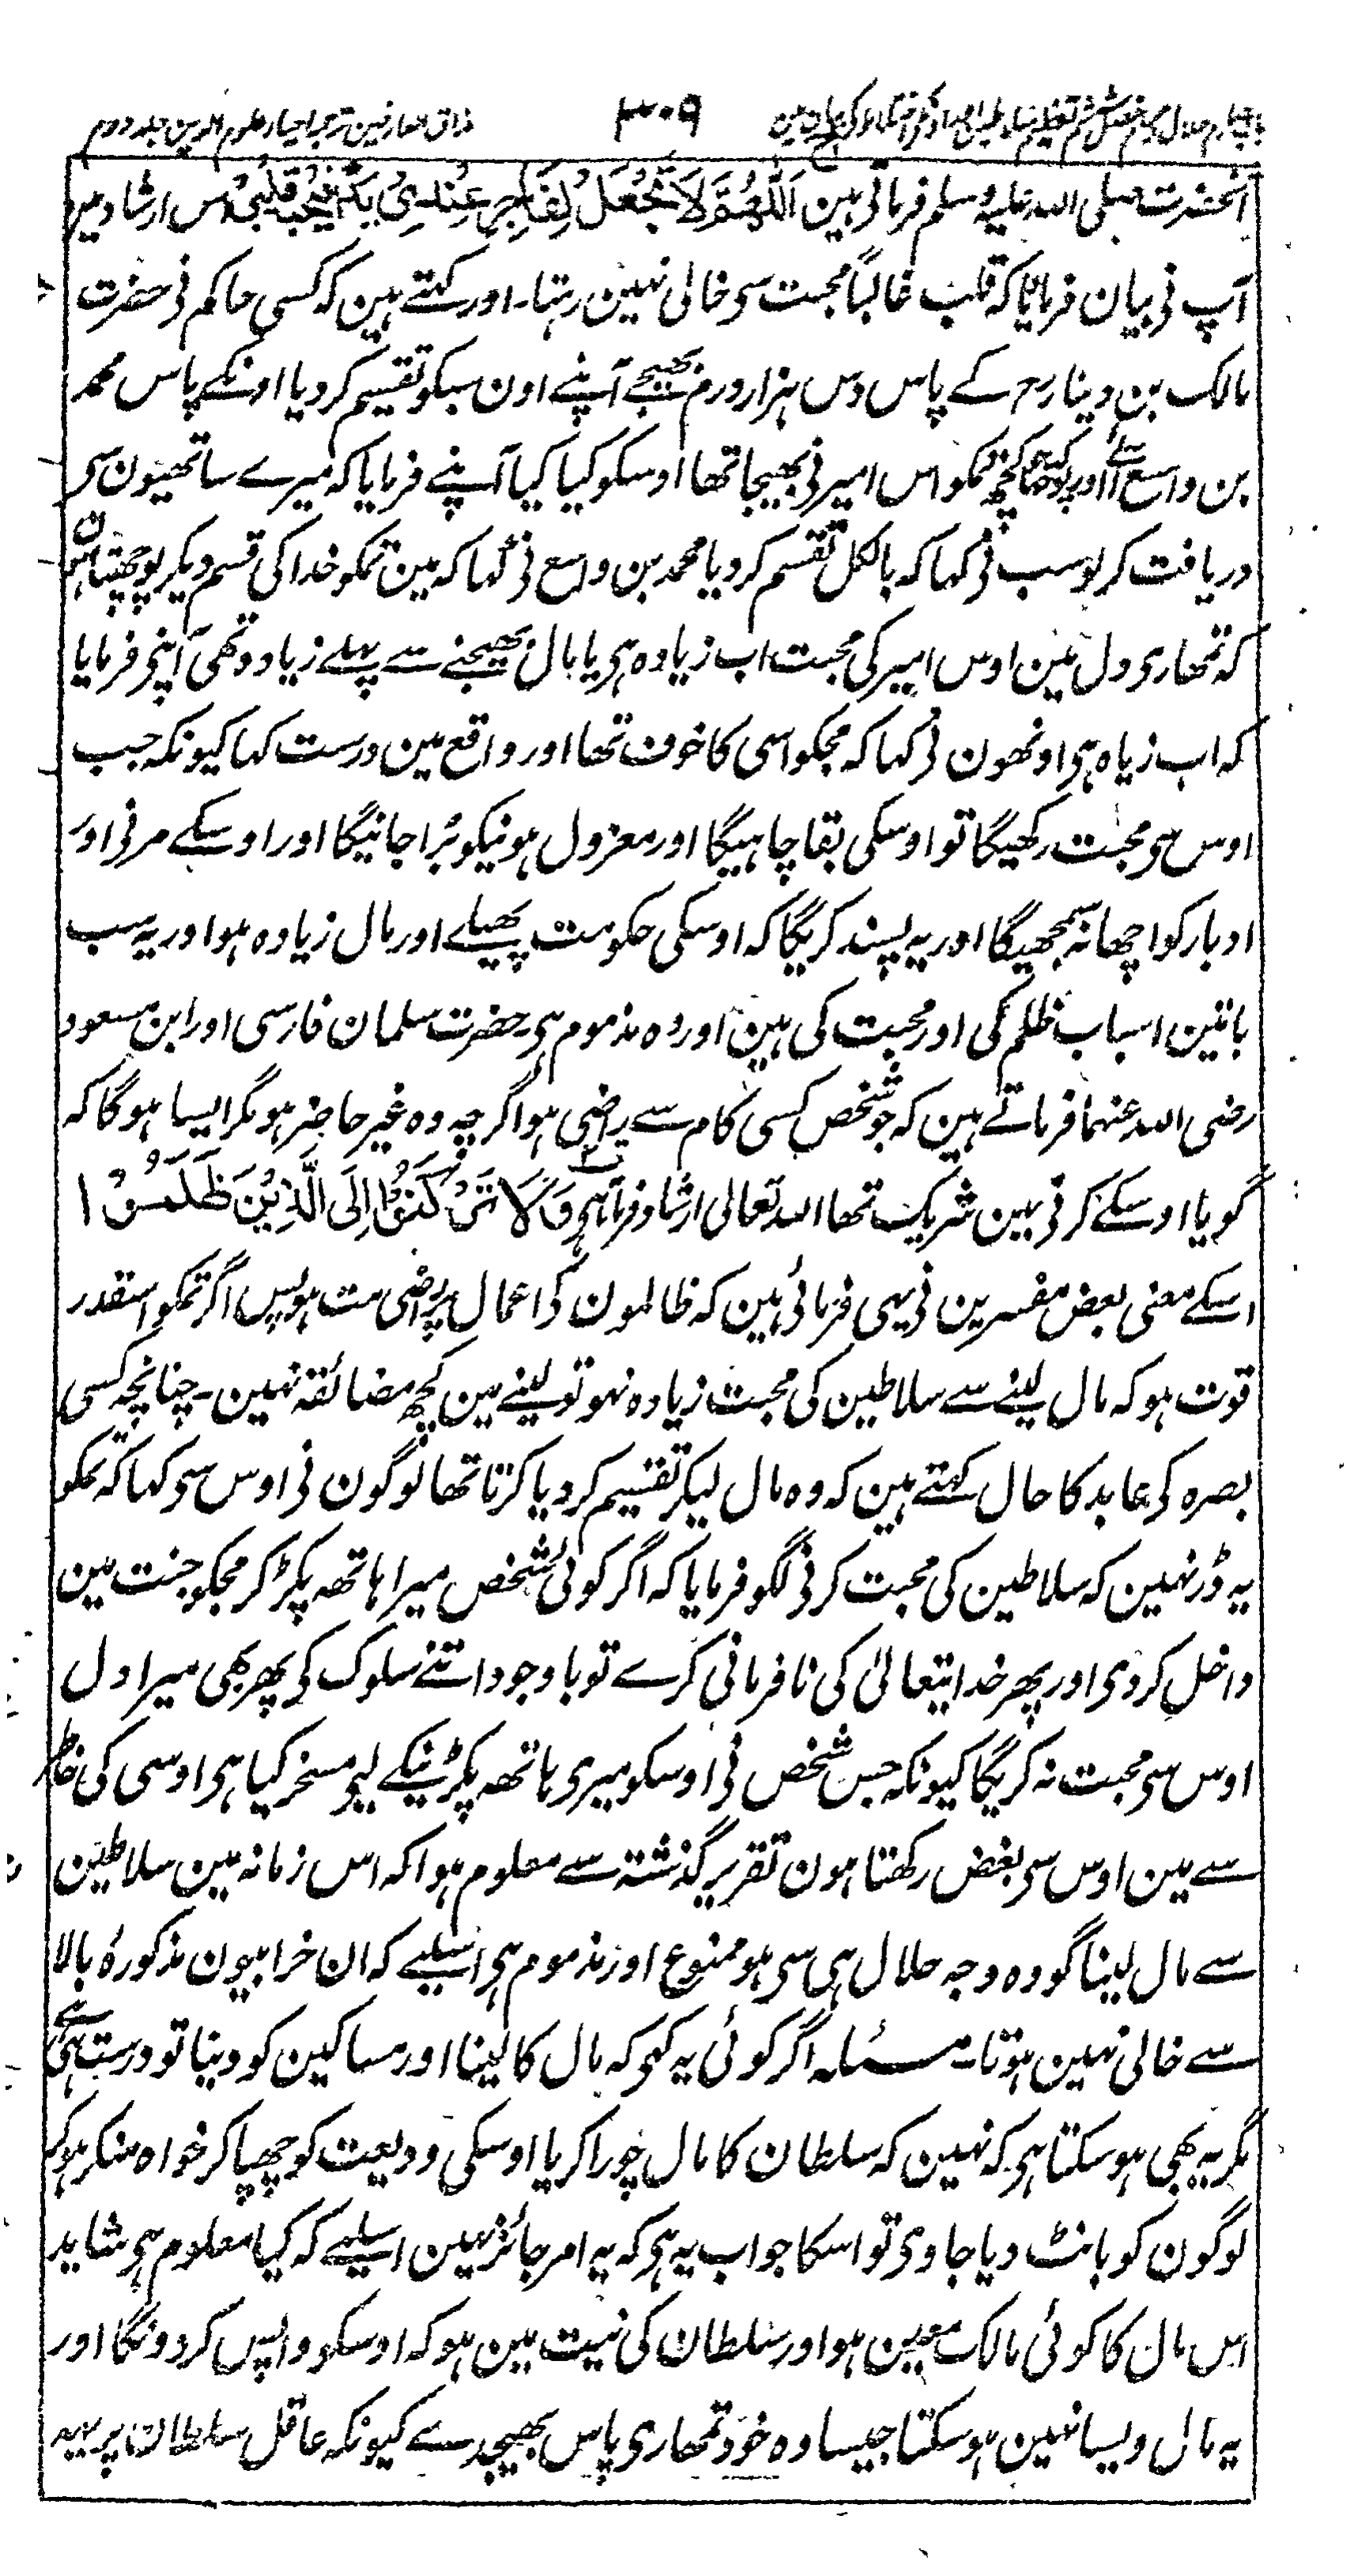 مذاق العارفین ترجمہ احیاء علوم الدین جلد دوم ۳۰۹
آنحضرت صلی اللہ علیہ وسلم فرماتی ہین اَللّٰھُمَّ لَا تَجْعَلْ لِفَاجِرٍ عِنْدِیْ یَدًا فَیُحِبَّہٗ قَلْبِیْ اس ارشاد مین
آپ نی بیان فرمایا کہ قلب غالباً محبت سی خالی نہین رہتا۔ اور کہتے ہین کہ کسی حاکم نی حضرت
مالک بن دینار رح کے پاس دس ہزار درم بھیجے آپنے اون سبکو تقسیم کر دیا اونکے پاس محمد
بن واسع آئے اور پوچھا کہ جو کچھ تمکو اس امیر نی بھیجا تھا اوسکو کیا کیا آپنے فرمایا کہ میرے ساتھیون سی
دریافت کر لو سب نی کہا کہ بالکل تقسیم کر دیا محمد بن واسع نی کہا کہ مین تمکو خدا کی قسم دیکر پوچھتا ہون
کہ تمھاری دل مین اوس امیر کی محبت اب زیادہ ہی یا مال بھیجنے سے پہلے زیادہ تھی آپنی فرمایا
کہ اب زیاہ ہی اونھون نی کہا کہ مجکو اسی کا خوف تھا اور واقع مین درست کہا کیونکہ جب
اوس سی محبت رکھیگا تو اوسکی بقا چاہیگا اور معزول ہونیکو بُرا جانیگا اور اوسکے مرنی اور
ادبار کو اچھا نہ سمجھیگا اور یہ پسند کریگا کہ اوسکی حکومت پھیلے اور مال زیادہ ہو اور یہ سب
باتین اسباب ظلم کی اور محبت کی ہین اور وہ مذموم ہی حضرت سلمان فارسی اور ابن مسعود
رضی اللہ عنہما فرماتے ہین کہ جو شخص کسی کام سے راضی ہو اگرچہ وہ غیر حاضر ہو مگر ایسا ہو گا کہ
گویا اوسکے کرنی مین شریک تھا اللہ تعالی ارشاد فرماتا ہی وَلَا تَرْکَنُوْا اِلَی الَّذِیْنَ ظَلَمُوْا
اسکے معنی بعض مفسرین نی یہی فرمائی ہین کہ ظالمون کی اعمال پر راضی مت ہو پس اگر تمکو اسقدر
قوت ہو کہ مال لینے سے سلاطین کی محبت زیادہ نہو تو لینے مین کچھ مضائقہ نہین۔ چنانچہ کسی
بصرہ کی عابد کا حال کہتے ہین کہ وہ مال لیکر تقسیم کر دیا کرتا تھا لوگون نی اوس سی کہا کہ تمکو
یہ ڈر نہین کہ سلاطین کی محبت کرنی لگو فرمایا کہ اگر کوئی شخص میرا ہاتھ پکڑ کر مجکو جنت مین
داخل کردی اور پھر خدایتعالیٰ کی نافرمانی کرے تو باوجود اتنے سلوک کی پھر بھی میرا دل
اوس سی محبت نہ کریگا کیونکہ جس شخص نی اوسکو میری ہاتھ پکڑنیکے لیی مسخر کیا ہی اوسی کی خاطر
سے مین اوس سی بغض رکھتا ہون تقریر گذشتہ سے معلوم ہوا کہ اس زمانہ مین سلاطین
سے مال لینا گو وہ وجہ حلال ہی سی ہو ممنوع اور مذموم ہی اسلیے کہ ان خرابیون مذکورہ بالا
سے خالی نہین ہوتا۔ مسئلہ اگر کوئی یہ کہی کہ مال کا لینا اور مساکین کو دینا تو درست ہی ہے
مگر یہ بھی ہو سکتا ہی کہ نہین کہ سلطان کا مال چوراکر یا اوسکی ودیعت کو چھپا کر خواہ منکر ہو کر
لوگون کو بانٹ دیا جاوی تو اسکا جواب یہ ہی کہ یہ امر جائز نہین اسلیے کہ کیا معلوم ہی شاید
اس مال کا کوئی مالک معین ہو اور سلطان کی نیت مین ہو کہ اوسکو واپس کر دونگا اور
یہ مال ویسا نہین ہو سکتا جیسا وہ خود تمھاری پاس بھیجدے کیونکہ عاقل سلطان پر یہہ